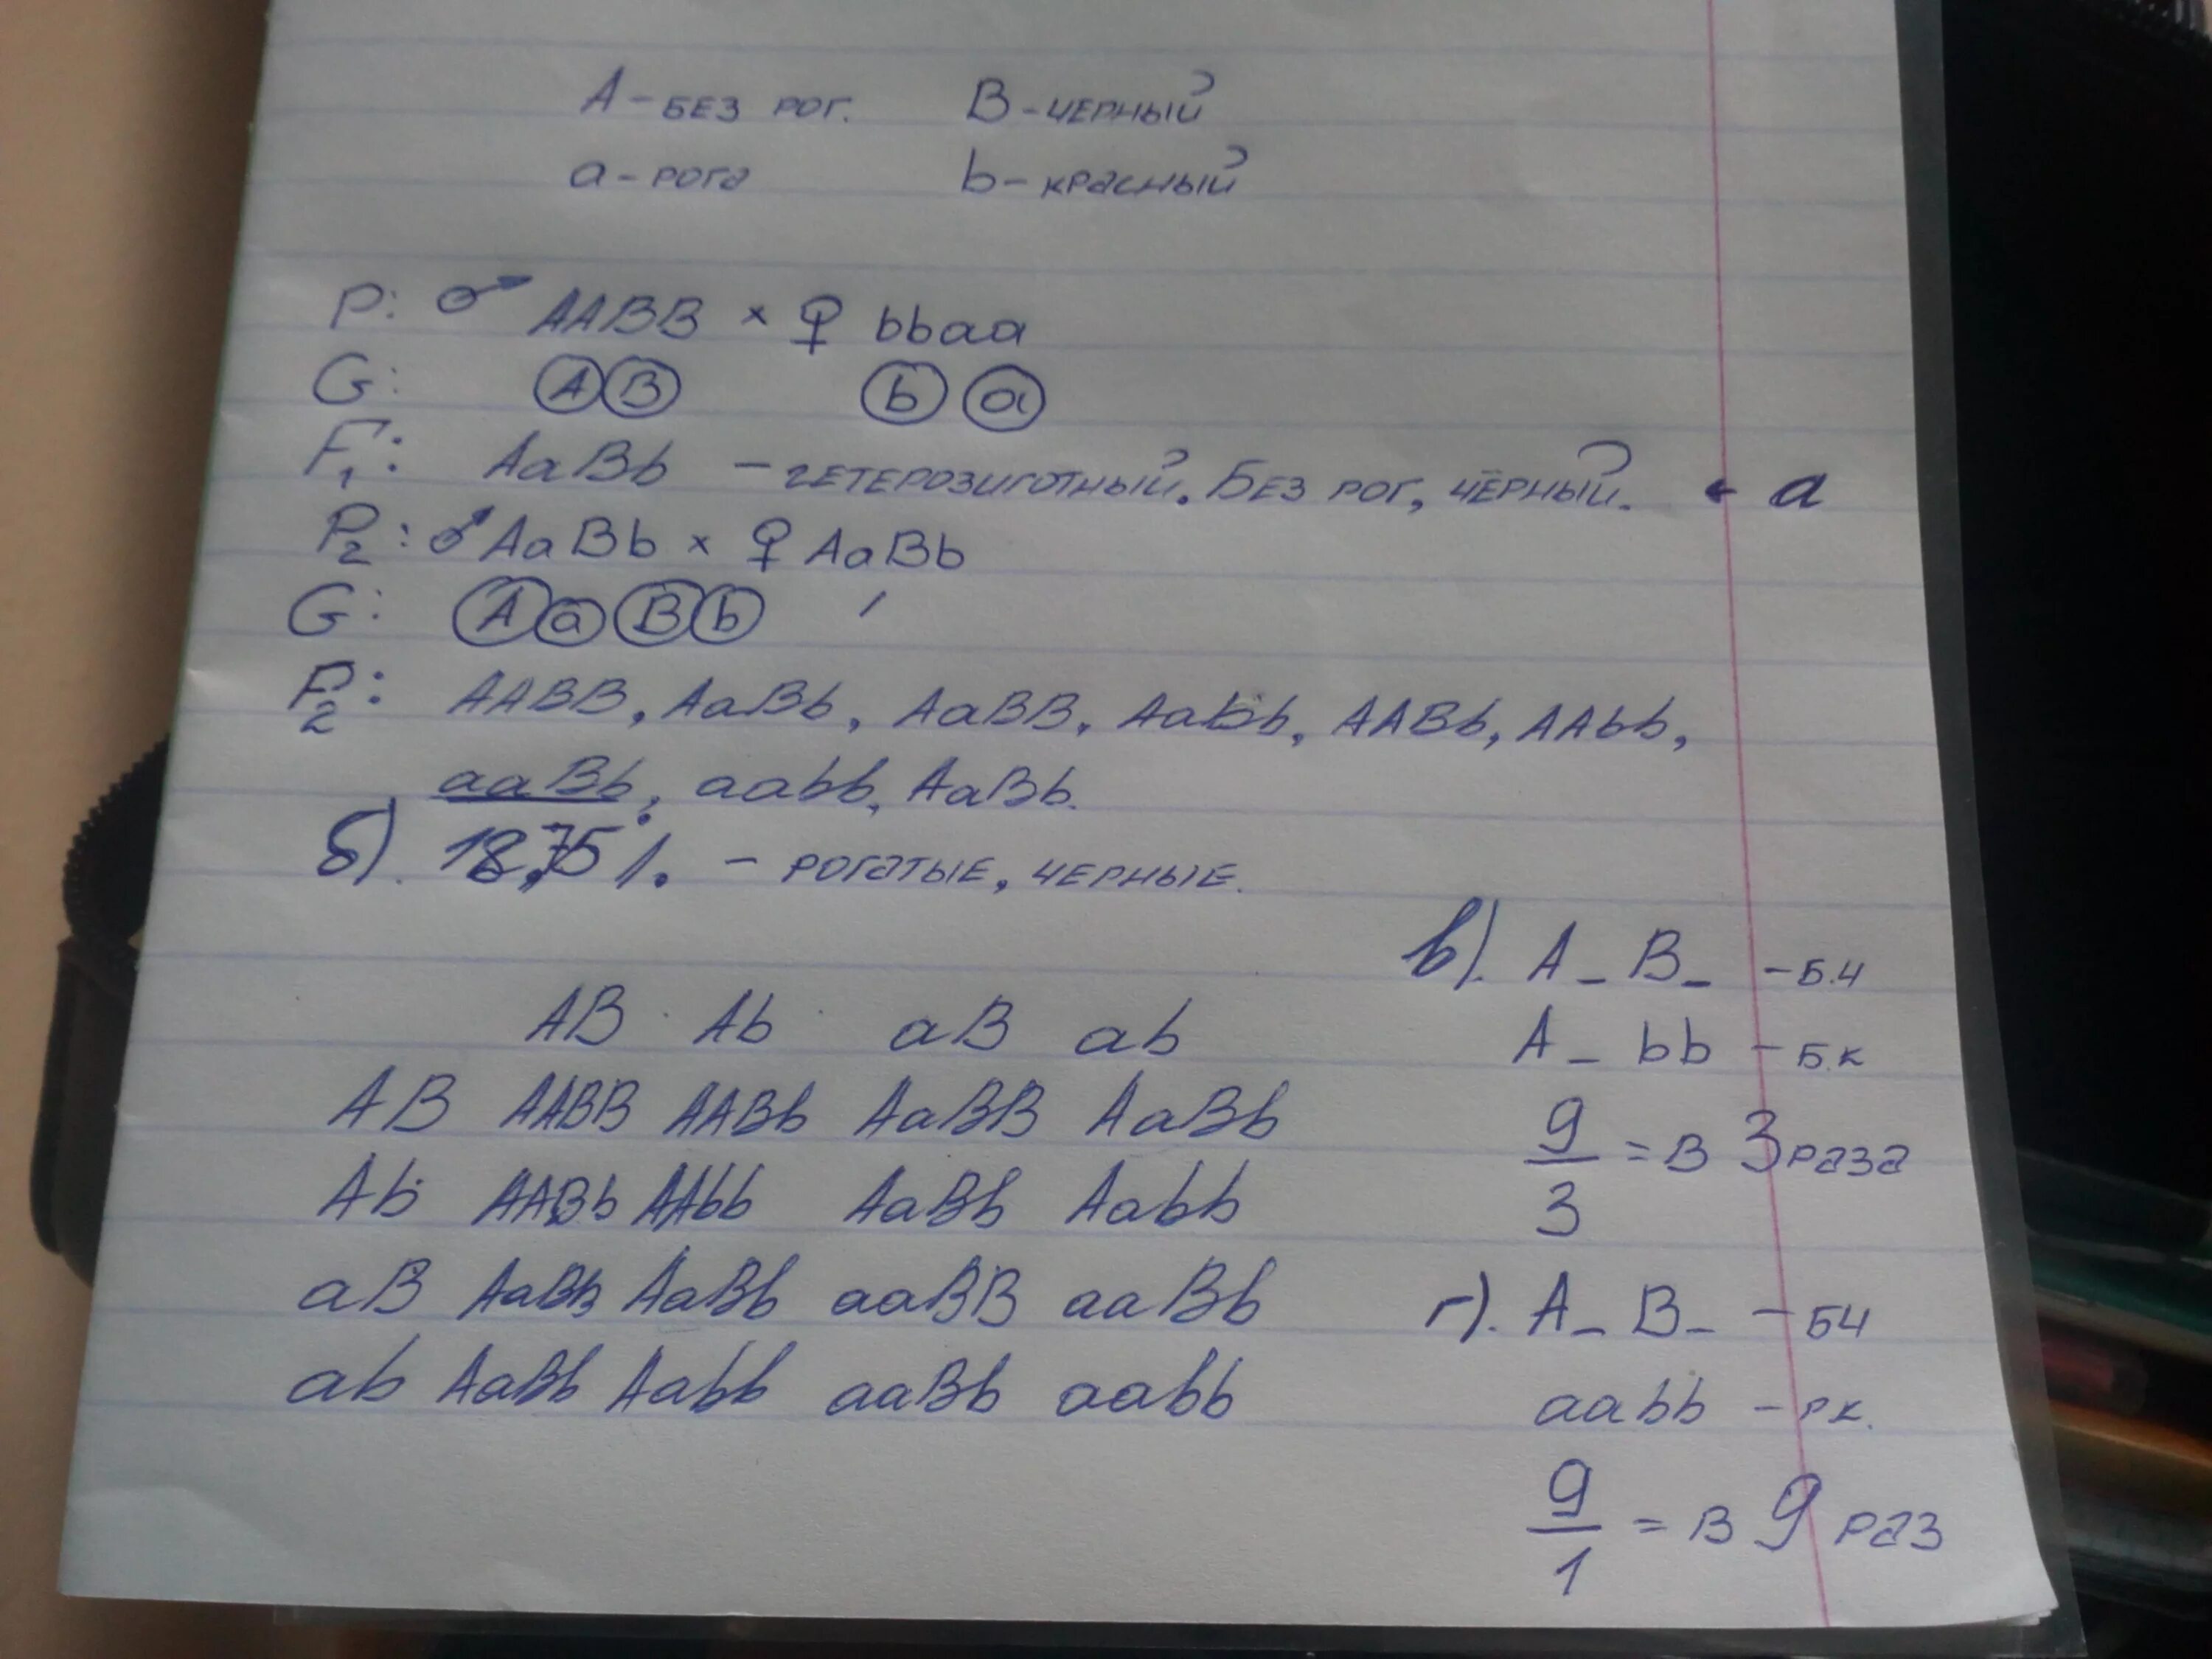 А - БЕЗ РОГ. В - ЧЕРНЫЙ
а - РОГА b - КРАСНЫЙ
P: ♂ AABB × ♀ bbaa
G: A B b a
F1: AaBb - ГЕТЕРОЗИГОТНЫЙ. БЕЗ РОГ, ЧЁРНЫЙ. ← а
P2: ♂ AaBb × ♀ AaBb
G: A a B b
F2: AABB, AaBb, AaBB, AaBb, AABb, AAbb,
aaBb, aabb, AaBb.
б). 18,75 %. - РОГАТЫЕ, ЧЕРНЫЕ.
AB Ab aB ab
AB AABB AABb AaBB AaBb
Ab AABb AAbb AaBb Aabb
aB AaBb AaBb aaBB aaBb
ab AaBb Aabb aaBb aabb
в). A_ B_ - Б.Ч
A_ bb - Б.К
9/3 = В 3 РАЗА
г). A_ B_ - БЧ
aabb - РК.
9/1 = В 9 РАЗ